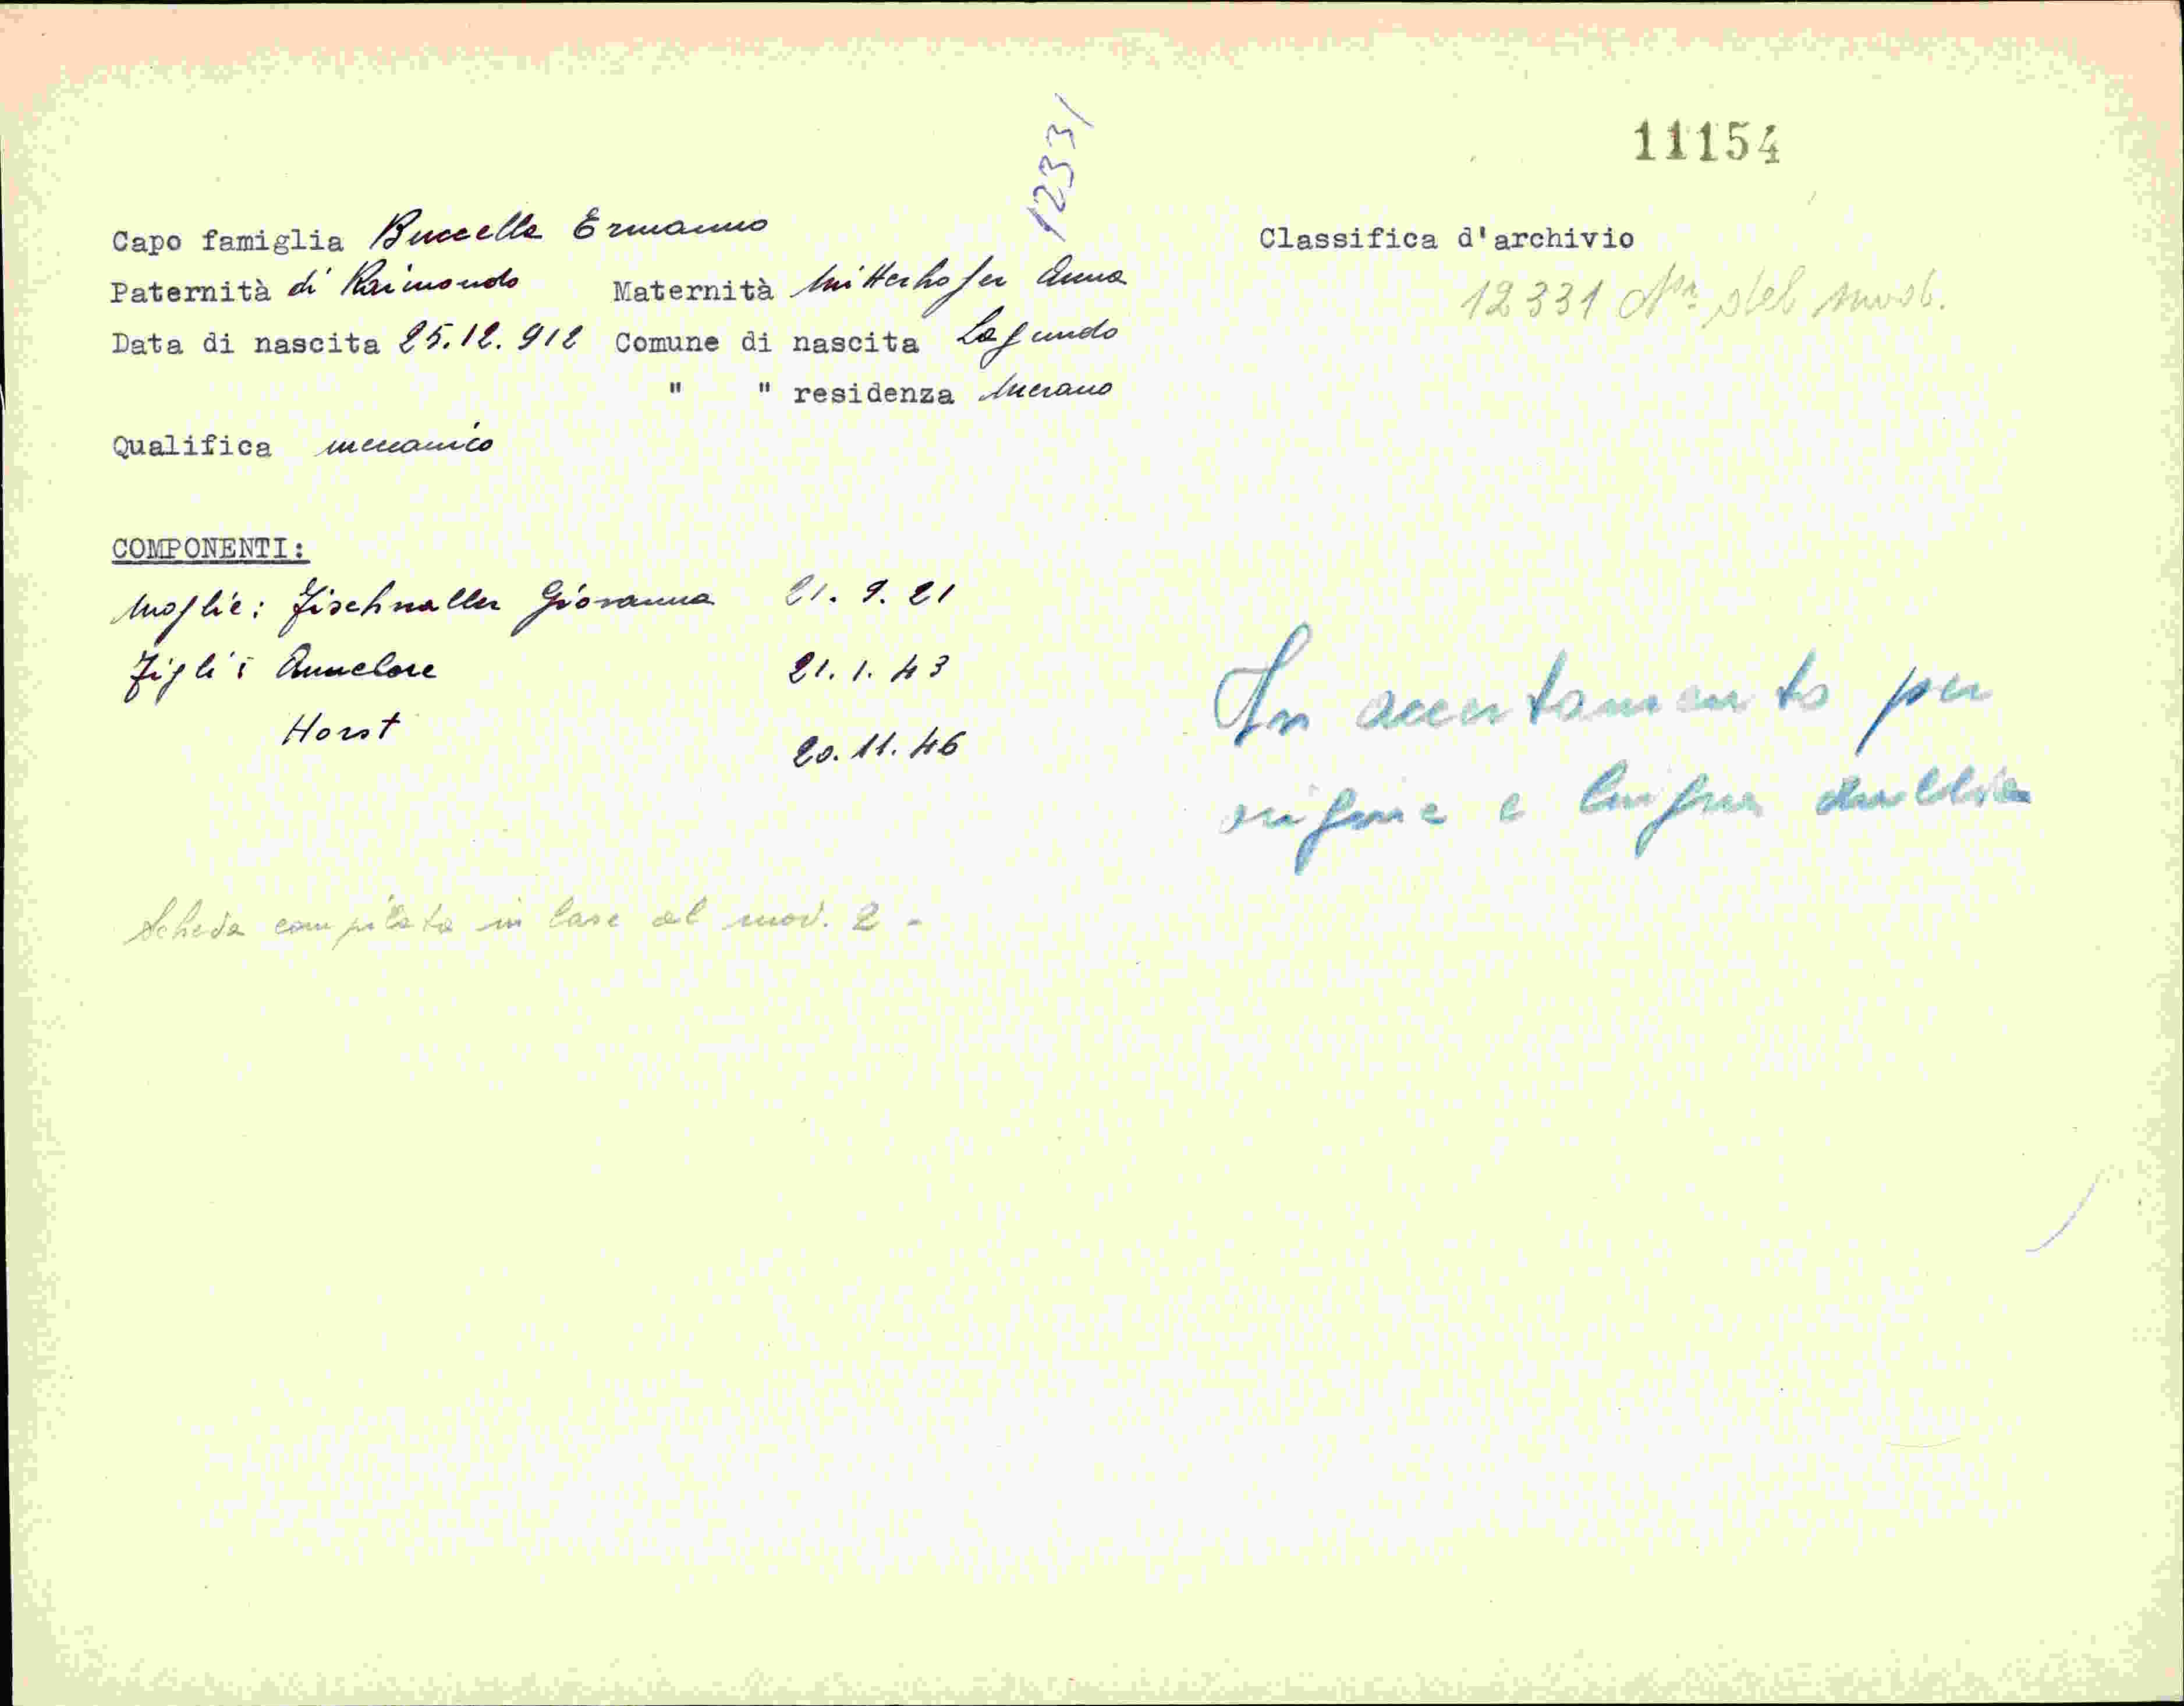 12331
11154
Capo famiglia Buccella Ermanno
Classifica d'archivio
Paternità di Raimondo Maternità Mitterhofer Anna
12331 Nr. del mod.
Data di nascita 25.12.912 Comune di nascita Lagundo
" " residenza Merano
Qualifica meccanico
COMPONENTI:
Moglie: Fischnaller Giovanna 21.9.21
Figli: Annelore 21.1.43
Horst 20.11.46
In accertamento per
origine e lingua dubbia
Scheda compilata in base al mod. 2 -